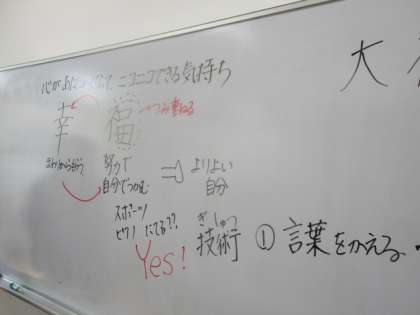 心があたたかくて、ニコニコできる気持ち
大
幸 福 つみ重ねる
まわりからもらう 努力で 自分でつかむ ⇒ よりよい 自分
スポーツ
ピアノ にてる??
Yes!
ぎ じゅつ
技術 ① 言葉をかえる。